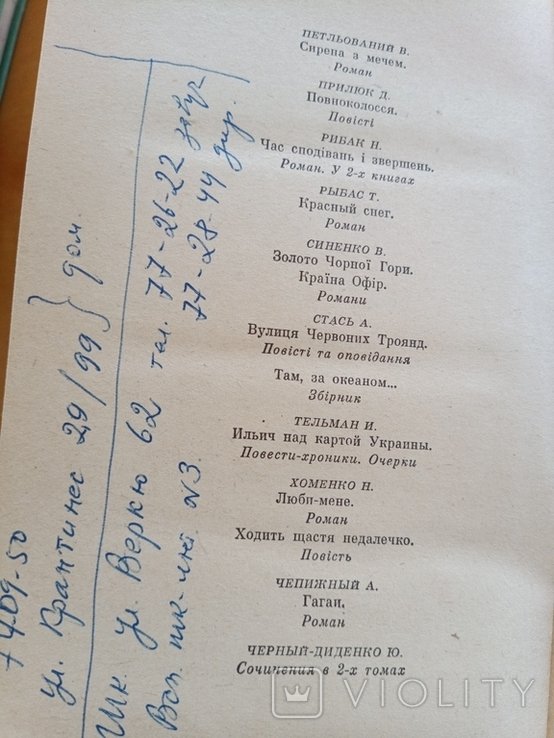 ПЕТЛЬОВАНИЙ В.
Сирена з мечем.
Роман
ПРИЛЮК Д.
Повноколосся.
Повісті
РИБАК Н.
Час сподівань і звершень.
Роман. У 2-х книгах
РЫБАС Т.
Красный снег.
Роман
СИНЕНКО В.
Золото Чорної Гори.
Країна Офір.
Романи
СТАСЬ А.
Вулиця Червоних Троянд.
Повісті та оповідання
Там, за океаном...
Збірник
ТЕЛЬМАН И.
Ильич над картой Украины.
Повести-хроники. Очерки
ХОМЕНКО Н.
Люби-мене.
Роман
Ходить щастя недалечко.
Повість
ЧЕПИЖНЫЙ А.
Гагаи.
Роман
ЧЕРНЫЙ-ДИДЕНКО Ю.
Сочинения в 2-х томах
409-50
ул. 29/99 } дом.
Шк. ул. Веркю 62 тел. 77-26-22 завуч
77-28-44 дир.
Всп. шк-инт. N3.
VIOLITY